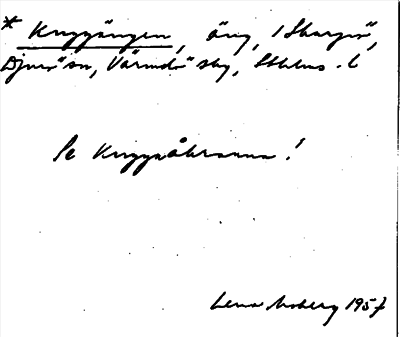 * Kryggängen, äng, i Skarpö,
Djurö sn, Värmdö skg, Sthlms. l
Se Kryggåkrarna!
Lena Moberg 1957